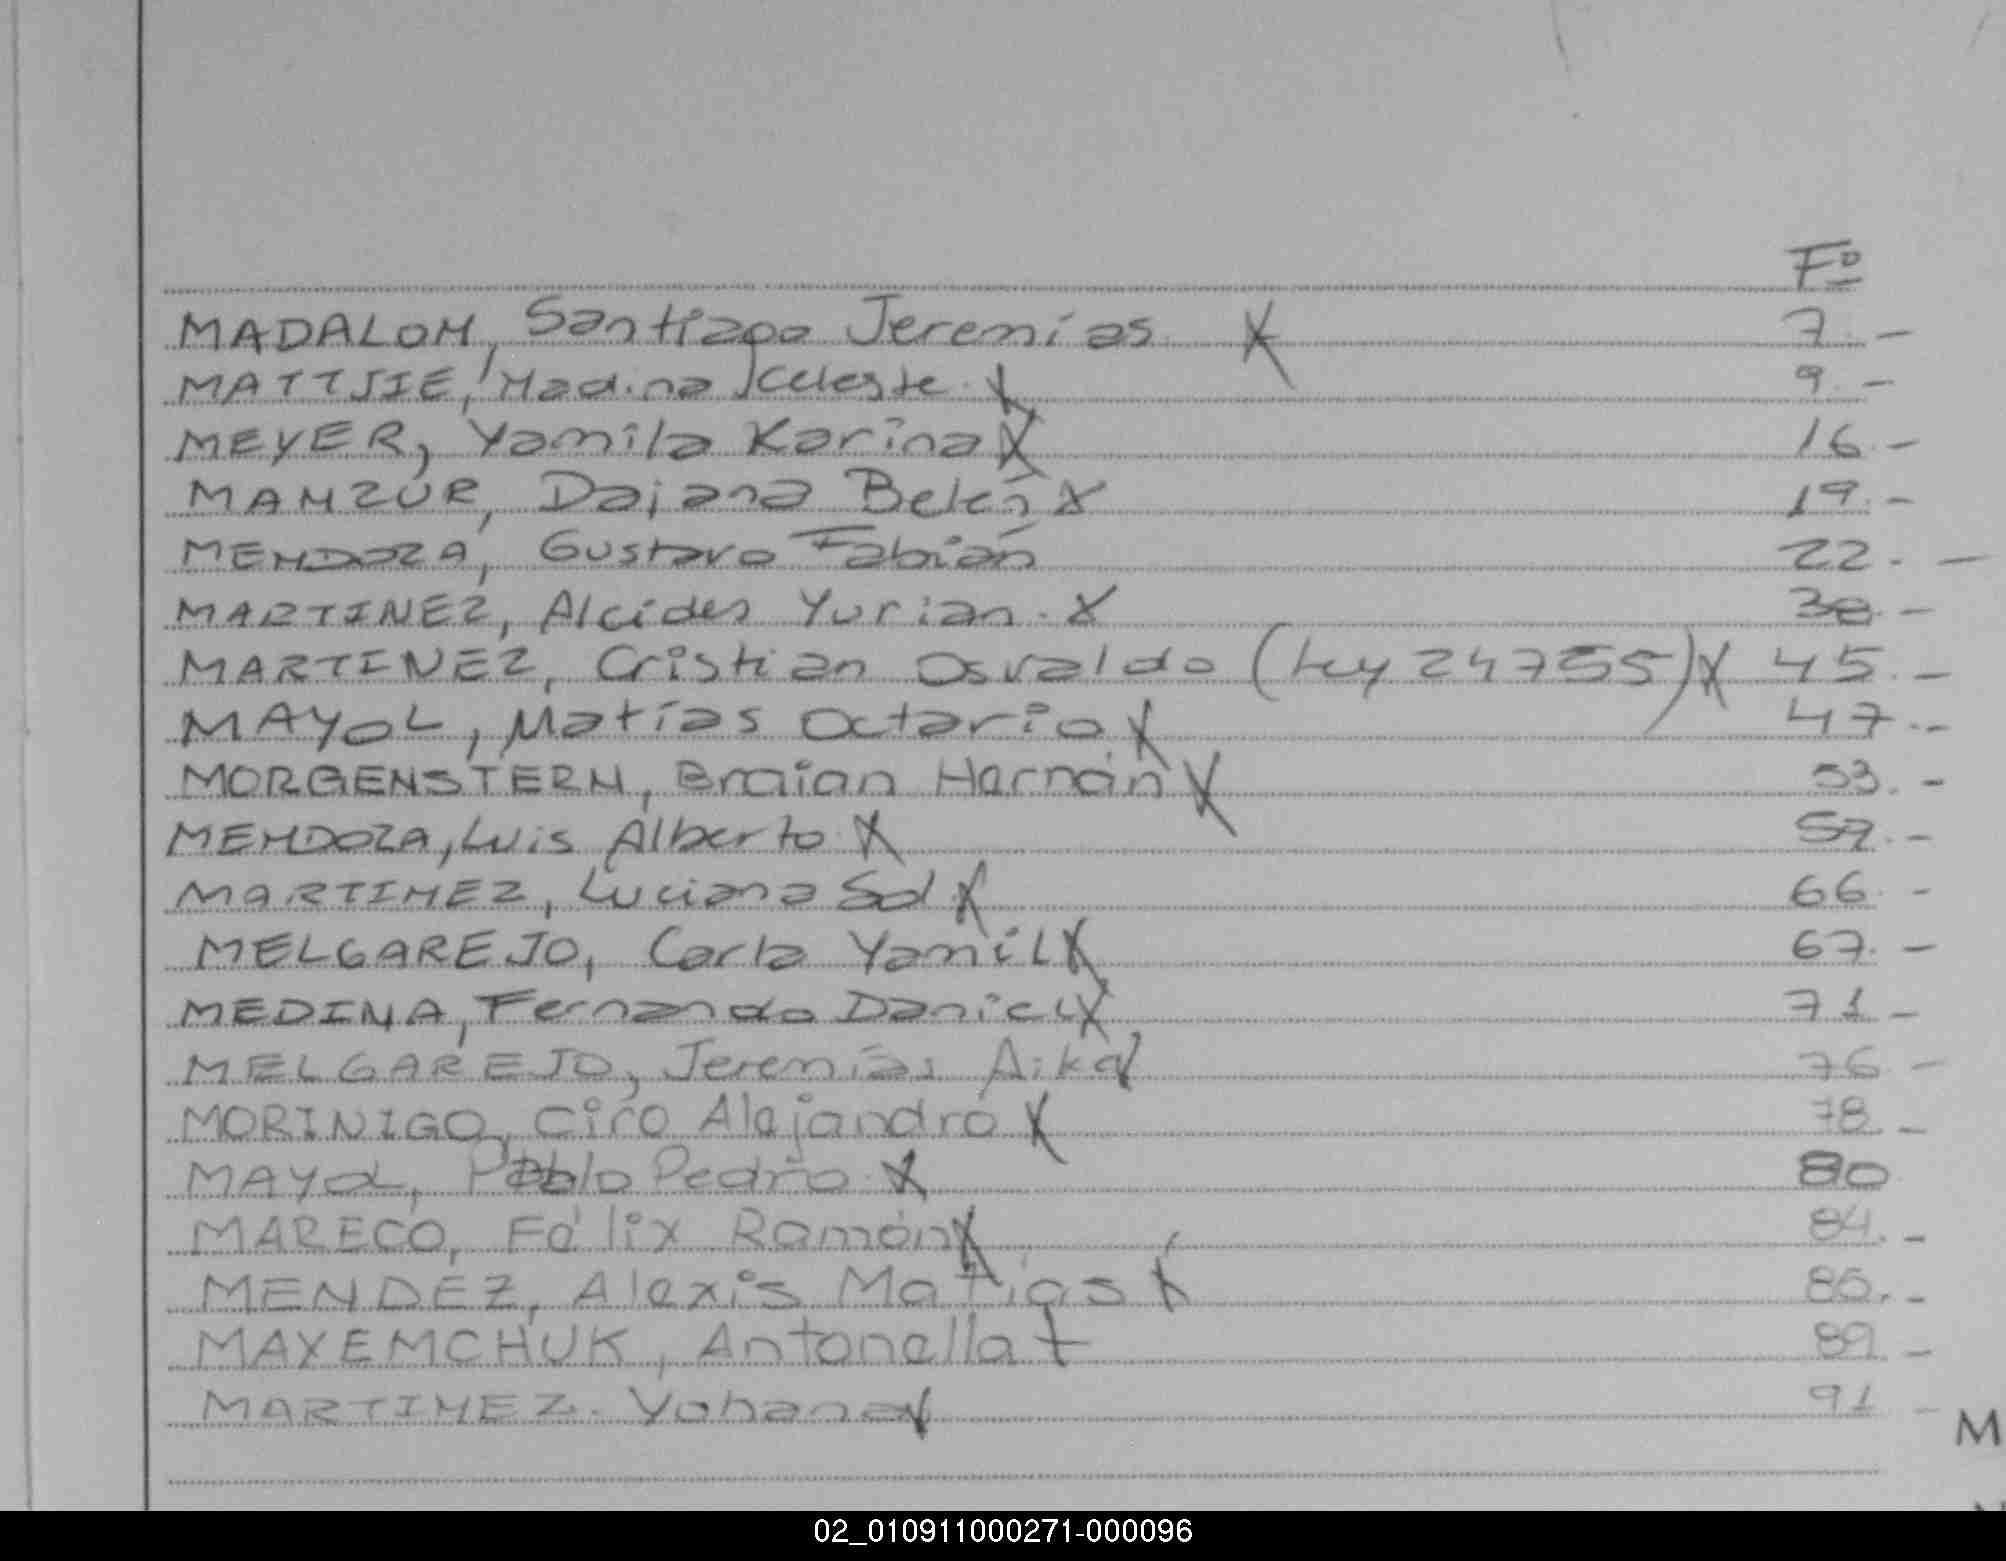 Fº
MADALON, Santiago Jeremías X 7.-
MATTJIE, Madina Celeste. X 9.-
MEYER, Yamila Karina X 16.-
MANZUR, Daiana Belén X 19.-
MENDOZA, Gustavo Fabián 22.-
MARTINEZ, Alcides Yurian. X 38.-
MARTINEZ, Cristian Osvaldo (Ley 24755) X 45.-
MAYOL, Matías Octavio X 47.-
MORGENSTERN, Braian Hernán X 53.-
MENDOZA, Luis Alberto X 57.-
MARTINEZ, Luciana Sol X 66.-
MELGAREJO, Carla Yamil X 67.-
MEDINA, Fernando Daniel X 71.-
MELGAREJO, Jeremías 76.-
MORINIGO, Ciro Alejandro X 78.-
MAYOL, Pablo Pedro X 80
MARECO, Félix Ramón X 84.-
MENDEZ, Alexis Matías X 86.-
MAXEMCHUK, Antonella X 89.-
MARTINEZ. Yohana X 91.-
M
02_010911000271-000096